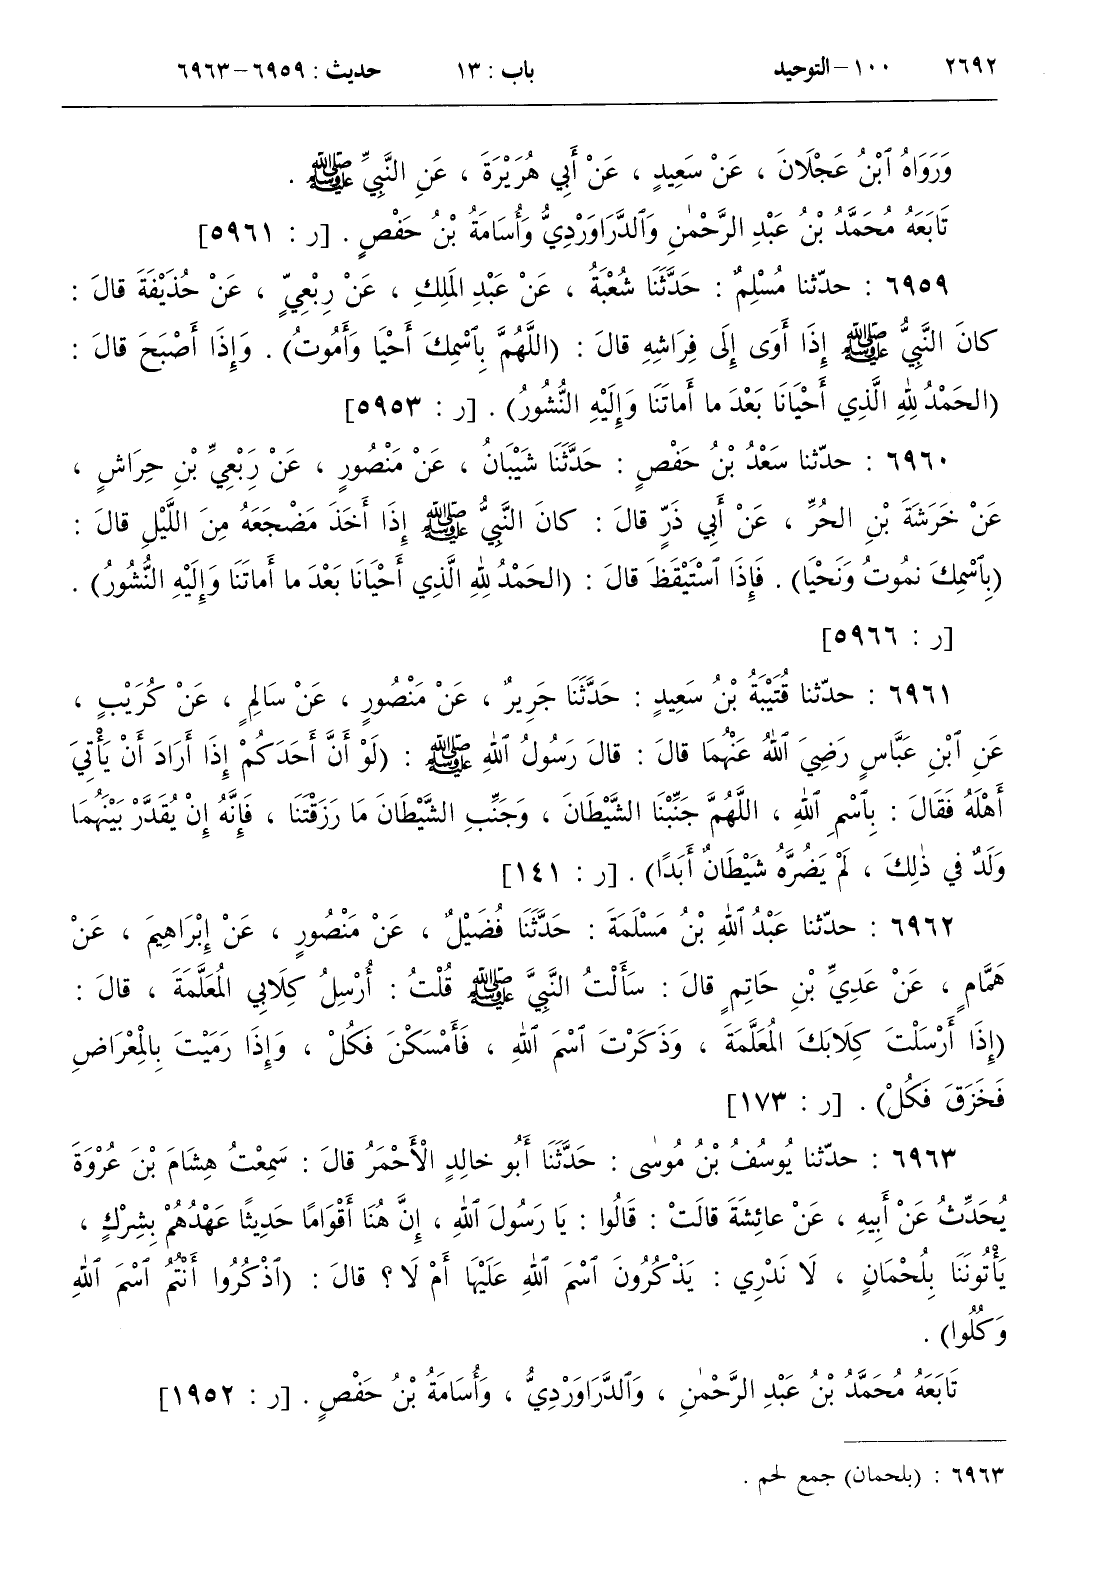 ٢٦٩٢ ١٠٠ – التوحيد باب : ١٣ حديث : ٦٩٥٩ – ٦٩٦٣
وَرَوَاهُ ٱبْنُ عَجْلَانَ ، عَنْ سَعِيدٍ ، عَنْ أَبِي هُرَيْرَةَ ، عَنِ النَّبِيِّ ﷺ .
تَابَعَهُ مُحَمَّدُ بْنُ عَبْدِ الرَّحْمٰنِ وَٱلدَّرَاوَرْدِيُّ وَأُسَامَةُ بْنُ حَفْصٍ . [ر : ٥٩٦١]
٦٩٥٩ : حدّثنا مُسْلِمٌ : حَدَّثَنَا شُعْبَةُ ، عَنْ عَبْدِ المَلِكِ ، عَنْ رِبْعِيٍّ ، عَنْ حُذَيْفَةَ قالَ :
كانَ النَّبِيُّ ﷺ إِذَا أَوَى إِلَى فِرَاشِهِ قالَ : (اللَّهُمَّ بِٱسْمِكَ أَحْيَا وَأَمُوتُ) . وَإِذَا أَصْبَحَ قالَ :
(الحَمْدُ لِلهِ الَّذِي أَحْيَانَا بَعْدَ ما أَماتَنَا وَإِلَيْهِ النُّشُورُ) . [ر : ٥٩٥٣]
٦٩٦٠ : حدّثنا سَعْدُ بْنُ حَفْصٍ : حَدَّثَنَا شَيْبَانُ ، عَنْ مَنْصُورٍ ، عَنْ رِبْعِيِّ بْنِ حِرَاشٍ ،
عَنْ خَرَشَةَ بْنِ الحُرِّ ، عَنْ أَبِي ذَرٍّ قالَ : كانَ النَّبِيُّ ﷺ إِذَا أَخَذَ مَضْجَعَهُ مِنَ اللَّيْلِ قالَ :
(بِٱسْمِكَ نَمُوتُ وَنَحْيَا) . فَإِذَا ٱسْتَيْقَظَ قالَ : (الحَمْدُ لِلهِ الَّذِي أَحْيَانَا بَعْدَ ما أَماتَنَا وَإِلَيْهِ النُّشُورُ) .
[ر : ٥٩٦٦]
٦٩٦١ : حدّثنا قُتَيْبَةُ بْنُ سَعِيدٍ : حَدَّثَنَا جَرِيرٌ ، عَنْ مَنْصُورٍ ، عَنْ سَالِمٍ ، عَنْ كُرَيْبٍ ،
عَنِ ٱبْنِ عَبَّاسٍ رَضِيَ ٱللهُ عَنْهُمَا قالَ : قالَ رَسُولُ ٱللهِ ﷺ : (لَوْ أَنَّ أَحَدَكُمْ إِذَا أَرَادَ أَنْ يَأْتِيَ
أَهْلَهُ فَقَالَ : بِٱسْمِ ٱللهِ ، اللَّهُمَّ جَنِّبْنَا الشَّيْطَانَ ، وَجَنِّبِ الشَّيْطَانَ مَا رَزَقْتَنَا ، فَإِنَّهُ إِنْ يُقَدَّرْ بَيْنَهُمَا
وَلَدٌ في ذٰلِكَ ، لَمْ يَضُرَّهُ شَيْطَانٌ أَبَدًا) . [ر : ١٤١]
٦٩٦٢ : حدّثنا عَبْدُ ٱللهِ بْنُ مَسْلَمَةَ : حَدَّثَنَا فُضَيْلٌ ، عَنْ مَنْصُورٍ ، عَنْ إِبْرَاهِيمَ ، عَنْ
هَمَّامٍ ، عَنْ عَدِيِّ بْنِ حَاتِمٍ قالَ : سَأَلْتُ النَّبِيَّ ﷺ قُلْتُ : أُرْسِلُ كِلَابِي المُعَلَّمَةَ ، قالَ :
(إِذَا أَرْسَلْتَ كِلَابَكَ المُعَلَّمَةَ ، وَذَكَرْتَ ٱسْمَ ٱللهِ ، فَأَمْسَكْنَ فَكُلْ ، وَإِذَا رَمَيْتَ بِالْمِعْرَاضِ
فَخَزَقَ فَكُلْ) . [ر : ١٧٣]
٦٩٦٣ : حدّثنا يُوسُفُ بْنُ مُوسٰى : حَدَّثَنَا أَبُو خالِدٍ الْأَحْمَرُ قالَ : سَمِعْتُ هِشَامَ بْنَ عُرْوَةَ
يُحَدِّثُ عَنْ أَبِيهِ ، عَنْ عائِشَةَ قالَتْ : قَالُوا : يَا رَسُولَ ٱللهِ ، إِنَّ هُنَا أَقْوَامًا حَدِيثًا عَهْدُهُمْ بِشِرْكٍ ،
يَأْتُونَنَا بِلُحْمَانٍ ، لَا نَدْرِي : يَذْكُرُونَ ٱسْمَ ٱللهِ عَلَيْهَا أَمْ لَا ؟ قالَ : (ٱذْكُرُوا أَنْتُمُ ٱسْمَ ٱللهِ
وَكُلُوا) .
تَابَعَهُ مُحَمَّدُ بْنُ عَبْدِ الرَّحْمٰنِ ، وَٱلدَّرَاوَرْدِيُّ ، وَأُسَامَةُ بْنُ حَفْصٍ . [ر : ١٩٥٢]
٦٩٦٣ : (بلحمان) جمع لحم .